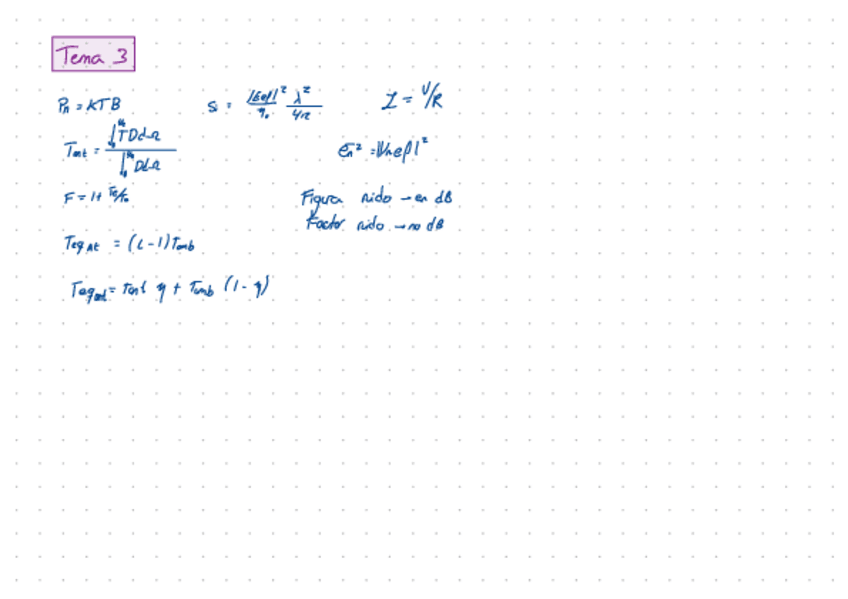 Tema 3
Pn = KTB
Si = |Eef|²/η₀ λ²/4π
I = V/R
Tant = ∫TDdΩ / ∫DdΩ
F = 1 + Te/T₀
Figura ruido → en dB
Factor ruido → no dB
Teq At = (L-1)Tamb
Teq = Tant η + Tamb (1-η)